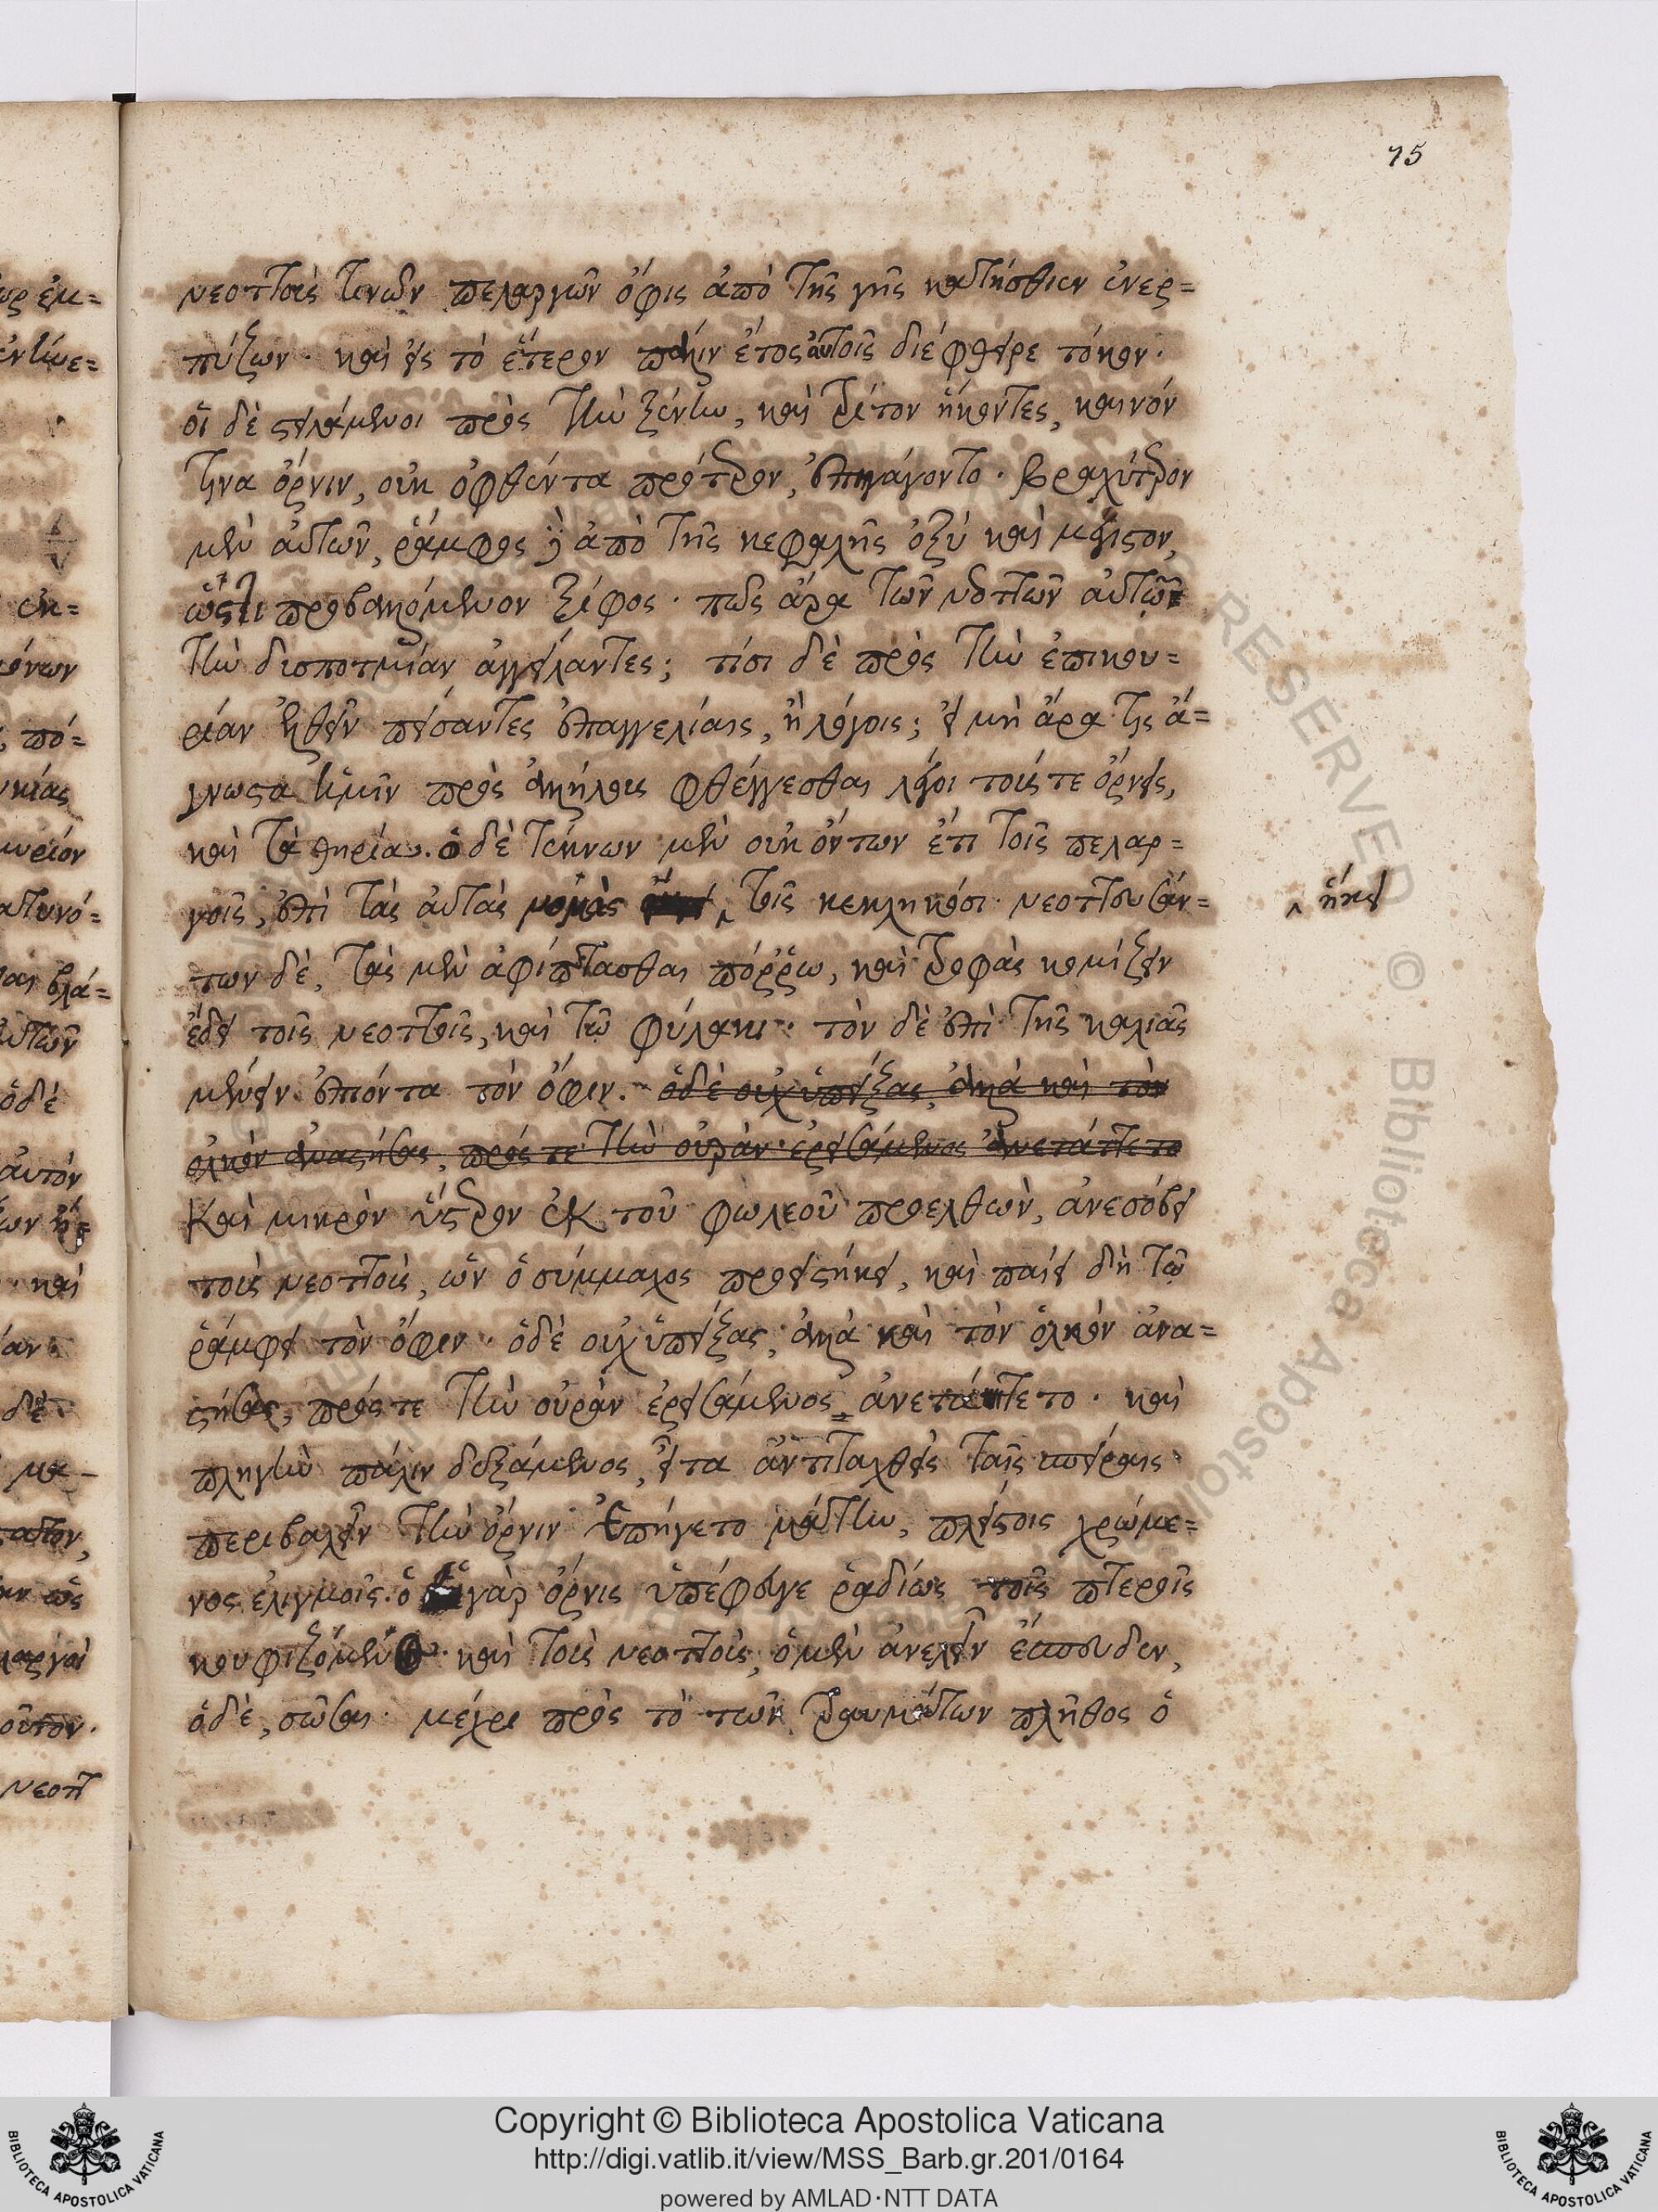 75
νεοττοὺς τινῶν πελαργῶν ὄφις ἀπὸ τῆς γῆς κατήσθιεν ἐνερ=
πύζων· καὶ εἰς τὸ ἕτερον πάλιν ἔτος αὐτοῖς διέφθειρε τόκον·
οἱ δὲ στειλάμενοι πρὸς τὴν ξένην, καὶ τρίτον ἥκοντες, καινόν
τινα ὄρνιν, οὐκ ὀφθέντα πρότερον, ἐπηγάγοντο· βραχύτερον
μὲν αὐτῶν, ῥάμφος δὲ ἀπὸ τῆς κεφαλῆς ὀξὺ καὶ μέγιστον,
ὥς τι προβαλλόμενον ξίφος· πῶς ἄρα τῶν νεοττῶν αὐτῶν
τὴν δυσποτμίαν ἀγγείλαντες; τίσι δὲ πρὸς τὴν ἐπικου=
ρίαν ἐλθεῖν πείσαντες ἐπαγγελίαις, ἢ λόγοις; εἰ μὴ ἄρα τις ἄ=
γνωστα ἡμῖν πρὸς ἀλλήλους φθέγγεσθαι λέγοι τούς τε ὄρνεις,
καὶ τὰ θηρία. ὁ δὲ τέκνων μὲν οὐκ ὄντων ἔτι τοῖς πελαρ=
γοῖς, ἐπὶ τὰς αὐτὰς νομὰς ‸ τοῖς κεκληκόσι· νεοττευσάν=
‸ ἧκε
των δὲ, τὰς μὲν ἀφίπτασθαι πόρρω, καὶ τροφὰς κομίζειν
ἔδει τοῖς νεοττοῖς, καὶ τῷ φύλακι· τὸν δὲ ἐπὶ τῆς καλιᾶς
μένειν ἐπιόντα τὸν ὄφιν. ὁ δὲ οὐχ ὑπείξας, ἀλλὰ καὶ τὸν
ὁλκὸν ἀναστήσας, πρός τε τὴν οὐρὰν ἐρεισάμενος ἀνετάττετο
καὶ μικρὸν ὕστερον ἐκ τοῦ φωλεοῦ προελθὼν, ἀνεσόβει
τοὺς νεοττοὺς, ὧν ὁ σύμμαχος προειστήκει, καὶ παίει δὴ τῷ
ῥάμφει τὸν ὄφιν· ὁ δὲ οὐχ ὑπείξας, ἀλλὰ καὶ τὸν ὁλκὸν ἀνα=
στήσας, πρός τε τὴν οὐρὰν ἐρεισάμενος, ἀνετάττετο· καὶ
πληγὴν πάλιν δεξάμενος, εἶτα ἀντιταχθεὶς ταῖς σπείραις
περιβαλεῖν τὴν ὄρνιν ἐπήγετο μάτην, πλείστοις χρώμε=
νος ἑλιγμοῖς. ὁ γὰρ ὄρνις ὑπέφευγε ῥαδίως τοῖς πτεροῖς
κουφιζόμενος· καὶ τοὺς νεοττοὺς, ὁ μὲν ἀνελεῖν ἔσπουδεν,
ὁ δὲ, σῶσαι· μέχρι πρὸς τὸ τῶν τραυμάτων πλῆθος ὁ
Copyright © Biblioteca Apostolica Vaticana
http://digi.vatlib.it/view/MSS_Barb.gr.201/0164
powered by AMLAD·NTT DATA
BIBLIOTECA APOSTOLICA VATICANA
BIBLIOTECA APOSTOLICA VATICANA